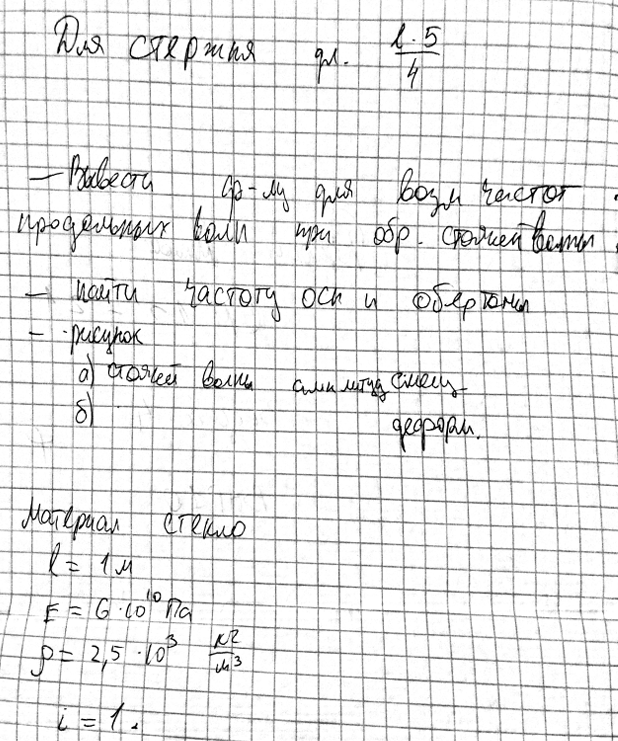 Для стержня дл. l·5/4
— Вывести ф-лу для возм частот
продольных волн при обр. стоячей волны
— найти частоту осн и обертоны
– рисунок
а) стоячей волны амплитуд смещ
б) деформ.
Материал стекло
l = 1 м
E = 6·10¹⁰ Па
ρ = 2,5·10³ кг/м³
i = 1.